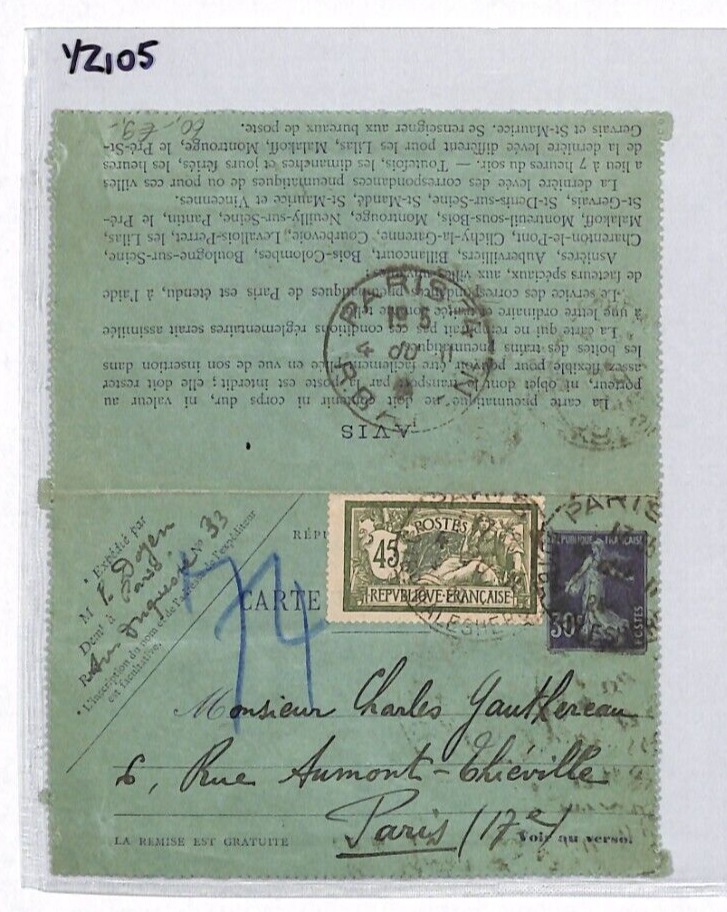 YZ105
60,- £9,-
Gervais et St-Maurice. Se renseigner aux bureaux de poste.
de la dernière levée diffèrent pour les Lilas, Malakoff, Montrouge, le Pré-St-
a lieu à 7 heures du soir. — Toutefois, les dimanches et jours fériés, les heures
La dernière levée des correspondances pneumatiques de ou pour ces villes
St-Gervais, St-Denis-sur-Seine, St-Mandé, St-Maurice et Vincennes.
Malakoff, Montreuil-sous-Bois, Montrouge, Neuilly-sur-Seine, Pantin, le Pré-
Charenton-le-Pont, Clichy-la-Garenne, Courbevoie, Levallois-Perret, les Lilas,
Asnières, Aubervilliers, Billancourt, Bois-Colombes, Boulogne-sur-Seine,
de facteurs spéciaux, aux villes
Le service des correspondances pneumatiques de Paris est étendu, à l'aide
à une lettre ordinaire et traitée comme telle
La carte qui ne remplirait pas ces conditions réglementaires serait assimilée
les boîtes des trains pneumatiques
assez flexible pour pouvoir être facilement pliée en vue de son insertion dans
porteur, ni objet dont le transport par la poste est interdit; elle doit rester
La carte pneumatique ne doit contenir ni corps dur, ni valeur au
AVIS
PARIS
4
Expédié par
M P. Doyen
Demt à Paris
R N° 33
L'inscription du nom et de l'adresse de l'expéditeur
est facultative.
RÉPU
CARTE
POSTES
45
REPVBLIQVE FRANÇAISE
PARIS
REPUBLIQUE FRANÇAISE
30c
POSTES
Monsieur Charles Gauthereau
6, Rue Aumont-Thiéville
Paris (17e)
LA REMISE EST GRATUITE
Voir au verso.